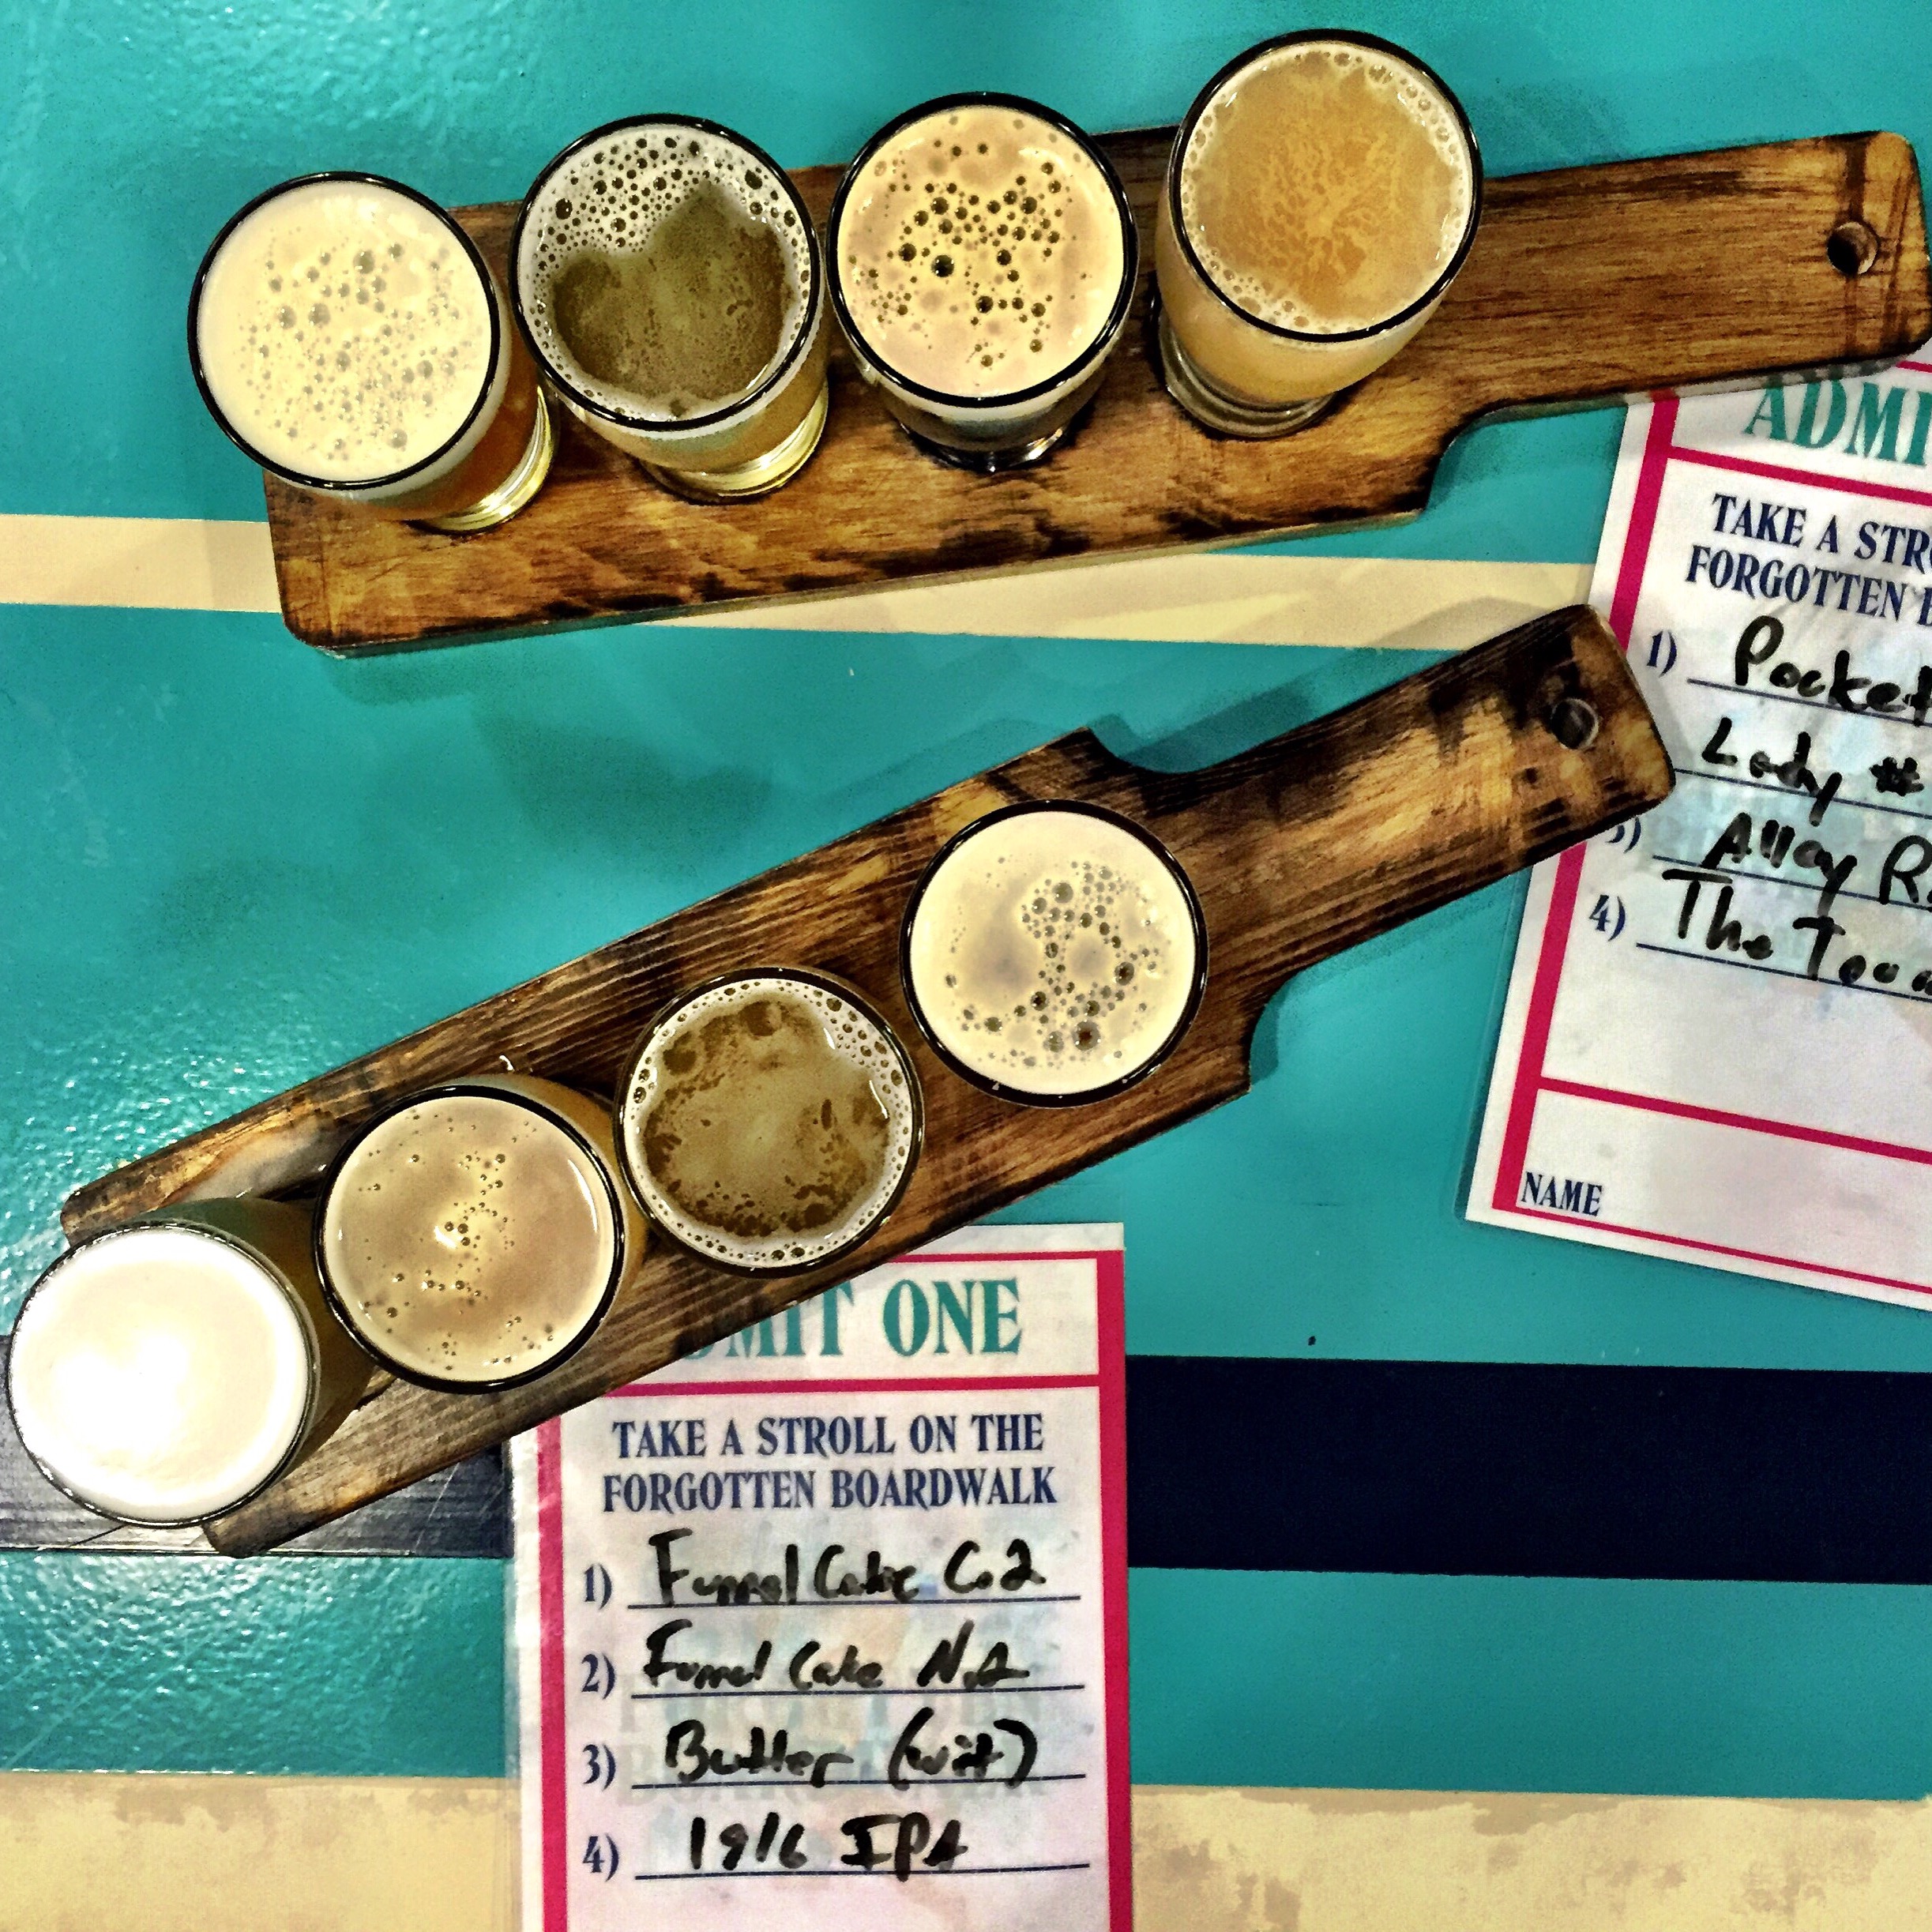 ADMI
TAKE A STR
FORGOTTEN
1) Pocket
Lady #
3) Alley
4) The
NAME
MIT ONE
TAKE A STROLL ON THE
FORGOTTEN BOARDWALK
1) Funnel Cake Co2
2) Funnel Cake N2
3) Butler (wit)
4) 1916 IPA